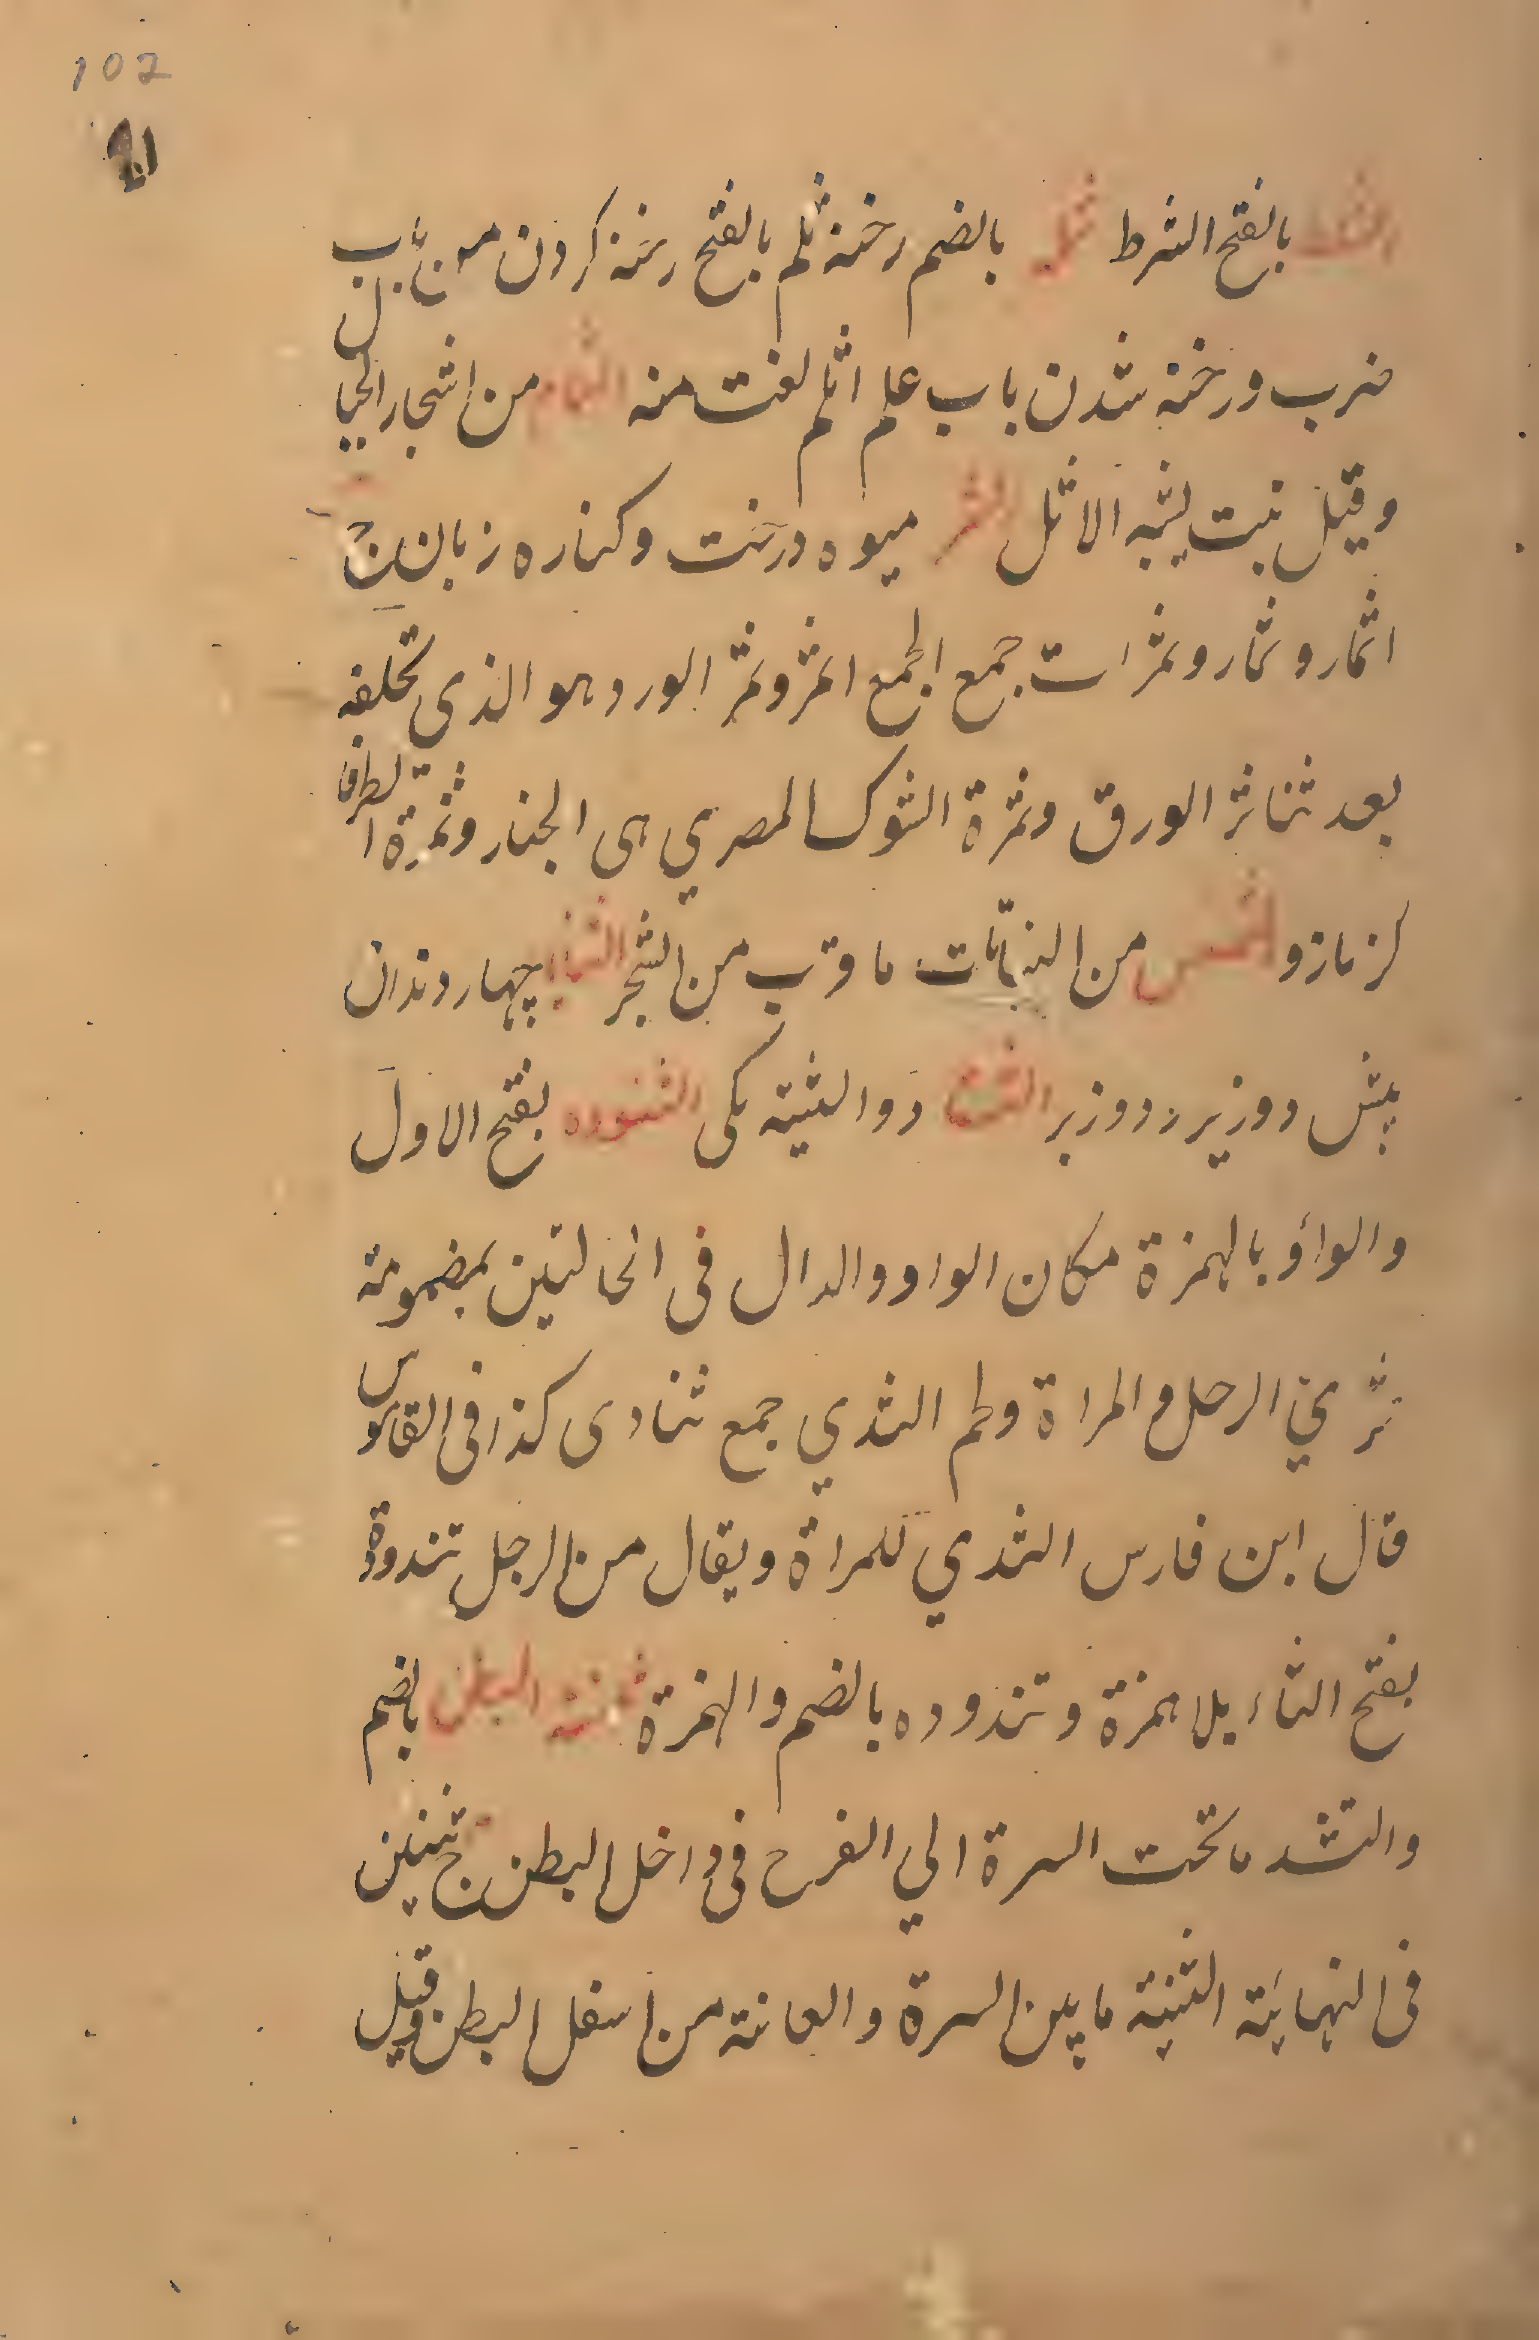 102
بالفتح الشرط ثلمه بالضم رخنه ثلم بالفتح رخنه کردن من باب
ضرب و رخنه شدن باب علم اثلم لغت منه الثمام من اشجار الجبال
وقیل نبت یشبه الاثل الثمر میوه درخت و کناره زبان ج
اثمار و ثمار و ثمرات جمع الجمع اثمر و ثمر الورد هو الذی تخلفه
بعد تناثر الورق و ثمرة الشوک المصري هی الجنار و ثمرة الطرفا
کزمازو من النباتات ما قرب من الشجر الثنایا چهار دندان
پیش دو زیر و دو زبر دو الثنیه یکی الثندوه بفتح الاول
والواؤ بالهمزة مکان الواو والدال فی الحالتین بمضمومة
الرجل و المراة و لحم الثدي جمع ثنادی کذا فی القاموس
قال ابن فارس الثدي للمراة ویقال من الرجل تندوة
بفتح الثاء بلا همزة و تندوده بالضم والهمزة ثنة البطن بالضم
والتشد ما تحت السرة الي الفرج فی داخل البطن ج ثنین
فی النهایة الثنیة ما بین السرة والعانة من اسفل البطن وقیل